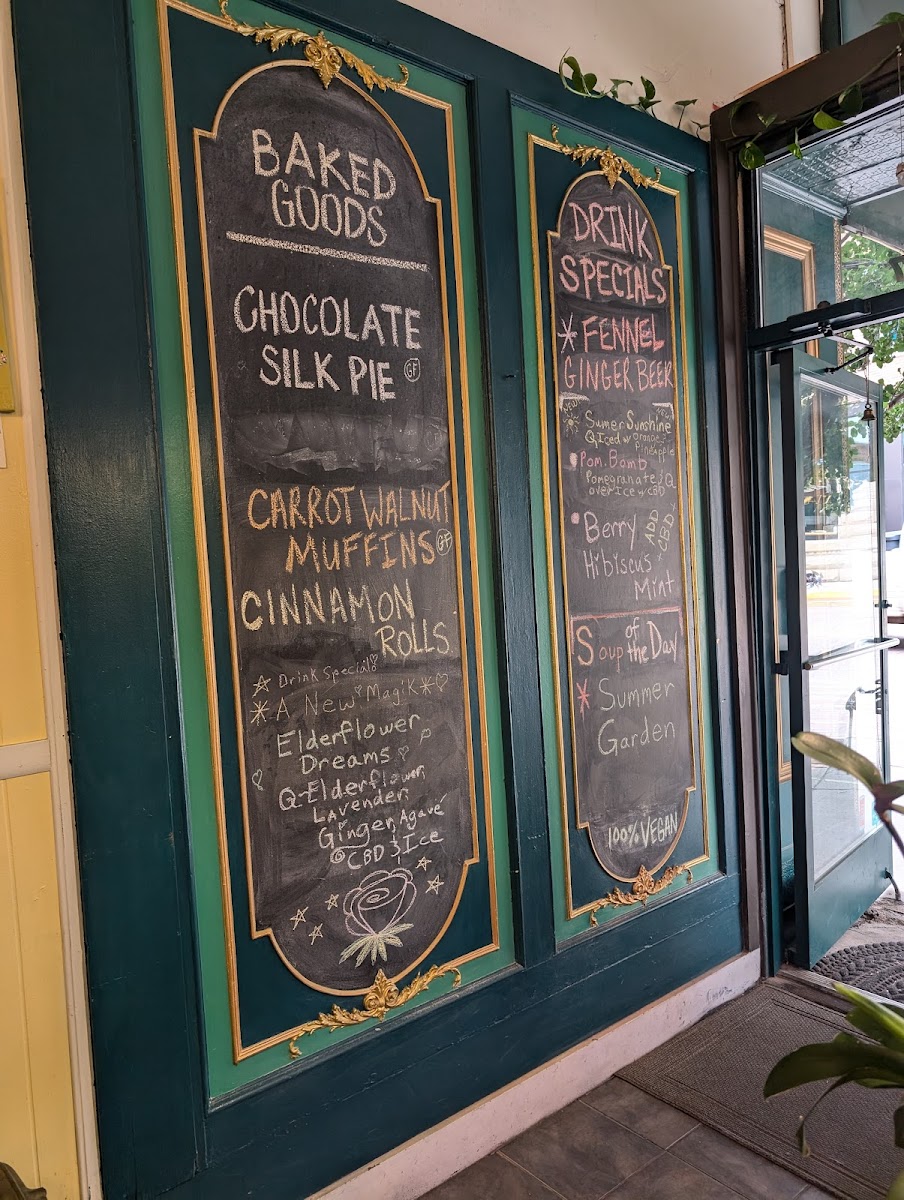 BAKED
GOODS
CHOCOLATE
SILK PIE GF
CARROT WALNUT
MUFFINS GF
CINNAMON
ROLLS
Drink Special!
A New Magik
Elderflower
Dreams
Q-Elderflower,
Lavender,
Ginger, Agavé
CBD & Ice
DRINK
SPECIALS
* FENNEL
GINGER BEER
Sumer Sunshine
Q Iced w orange
Pineapple
Pom. Bomb
Pomegranate & Q
over Ice w CBD
Berry
Hibiscus
Mint
ADD
CBD
Soup of the Day
* Summer
Garden
100% VEGAN